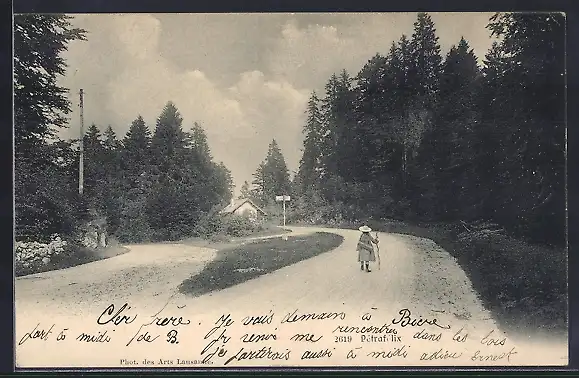 Cher frère. Je vais demain à Bière
part à midi de B. Je renoi me rencontre dans les bois
je parterois aussi à midi adieu Ernest
2619 Pétrafelix
Phot. des Arts Lausanne.